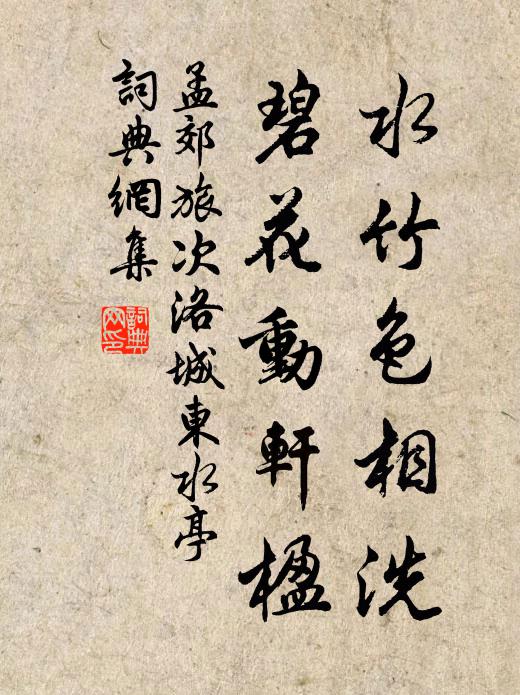 水竹色相洗
碧花動軒楹
孟郊旅次洛城東水亭
詞典網集
詞典網印